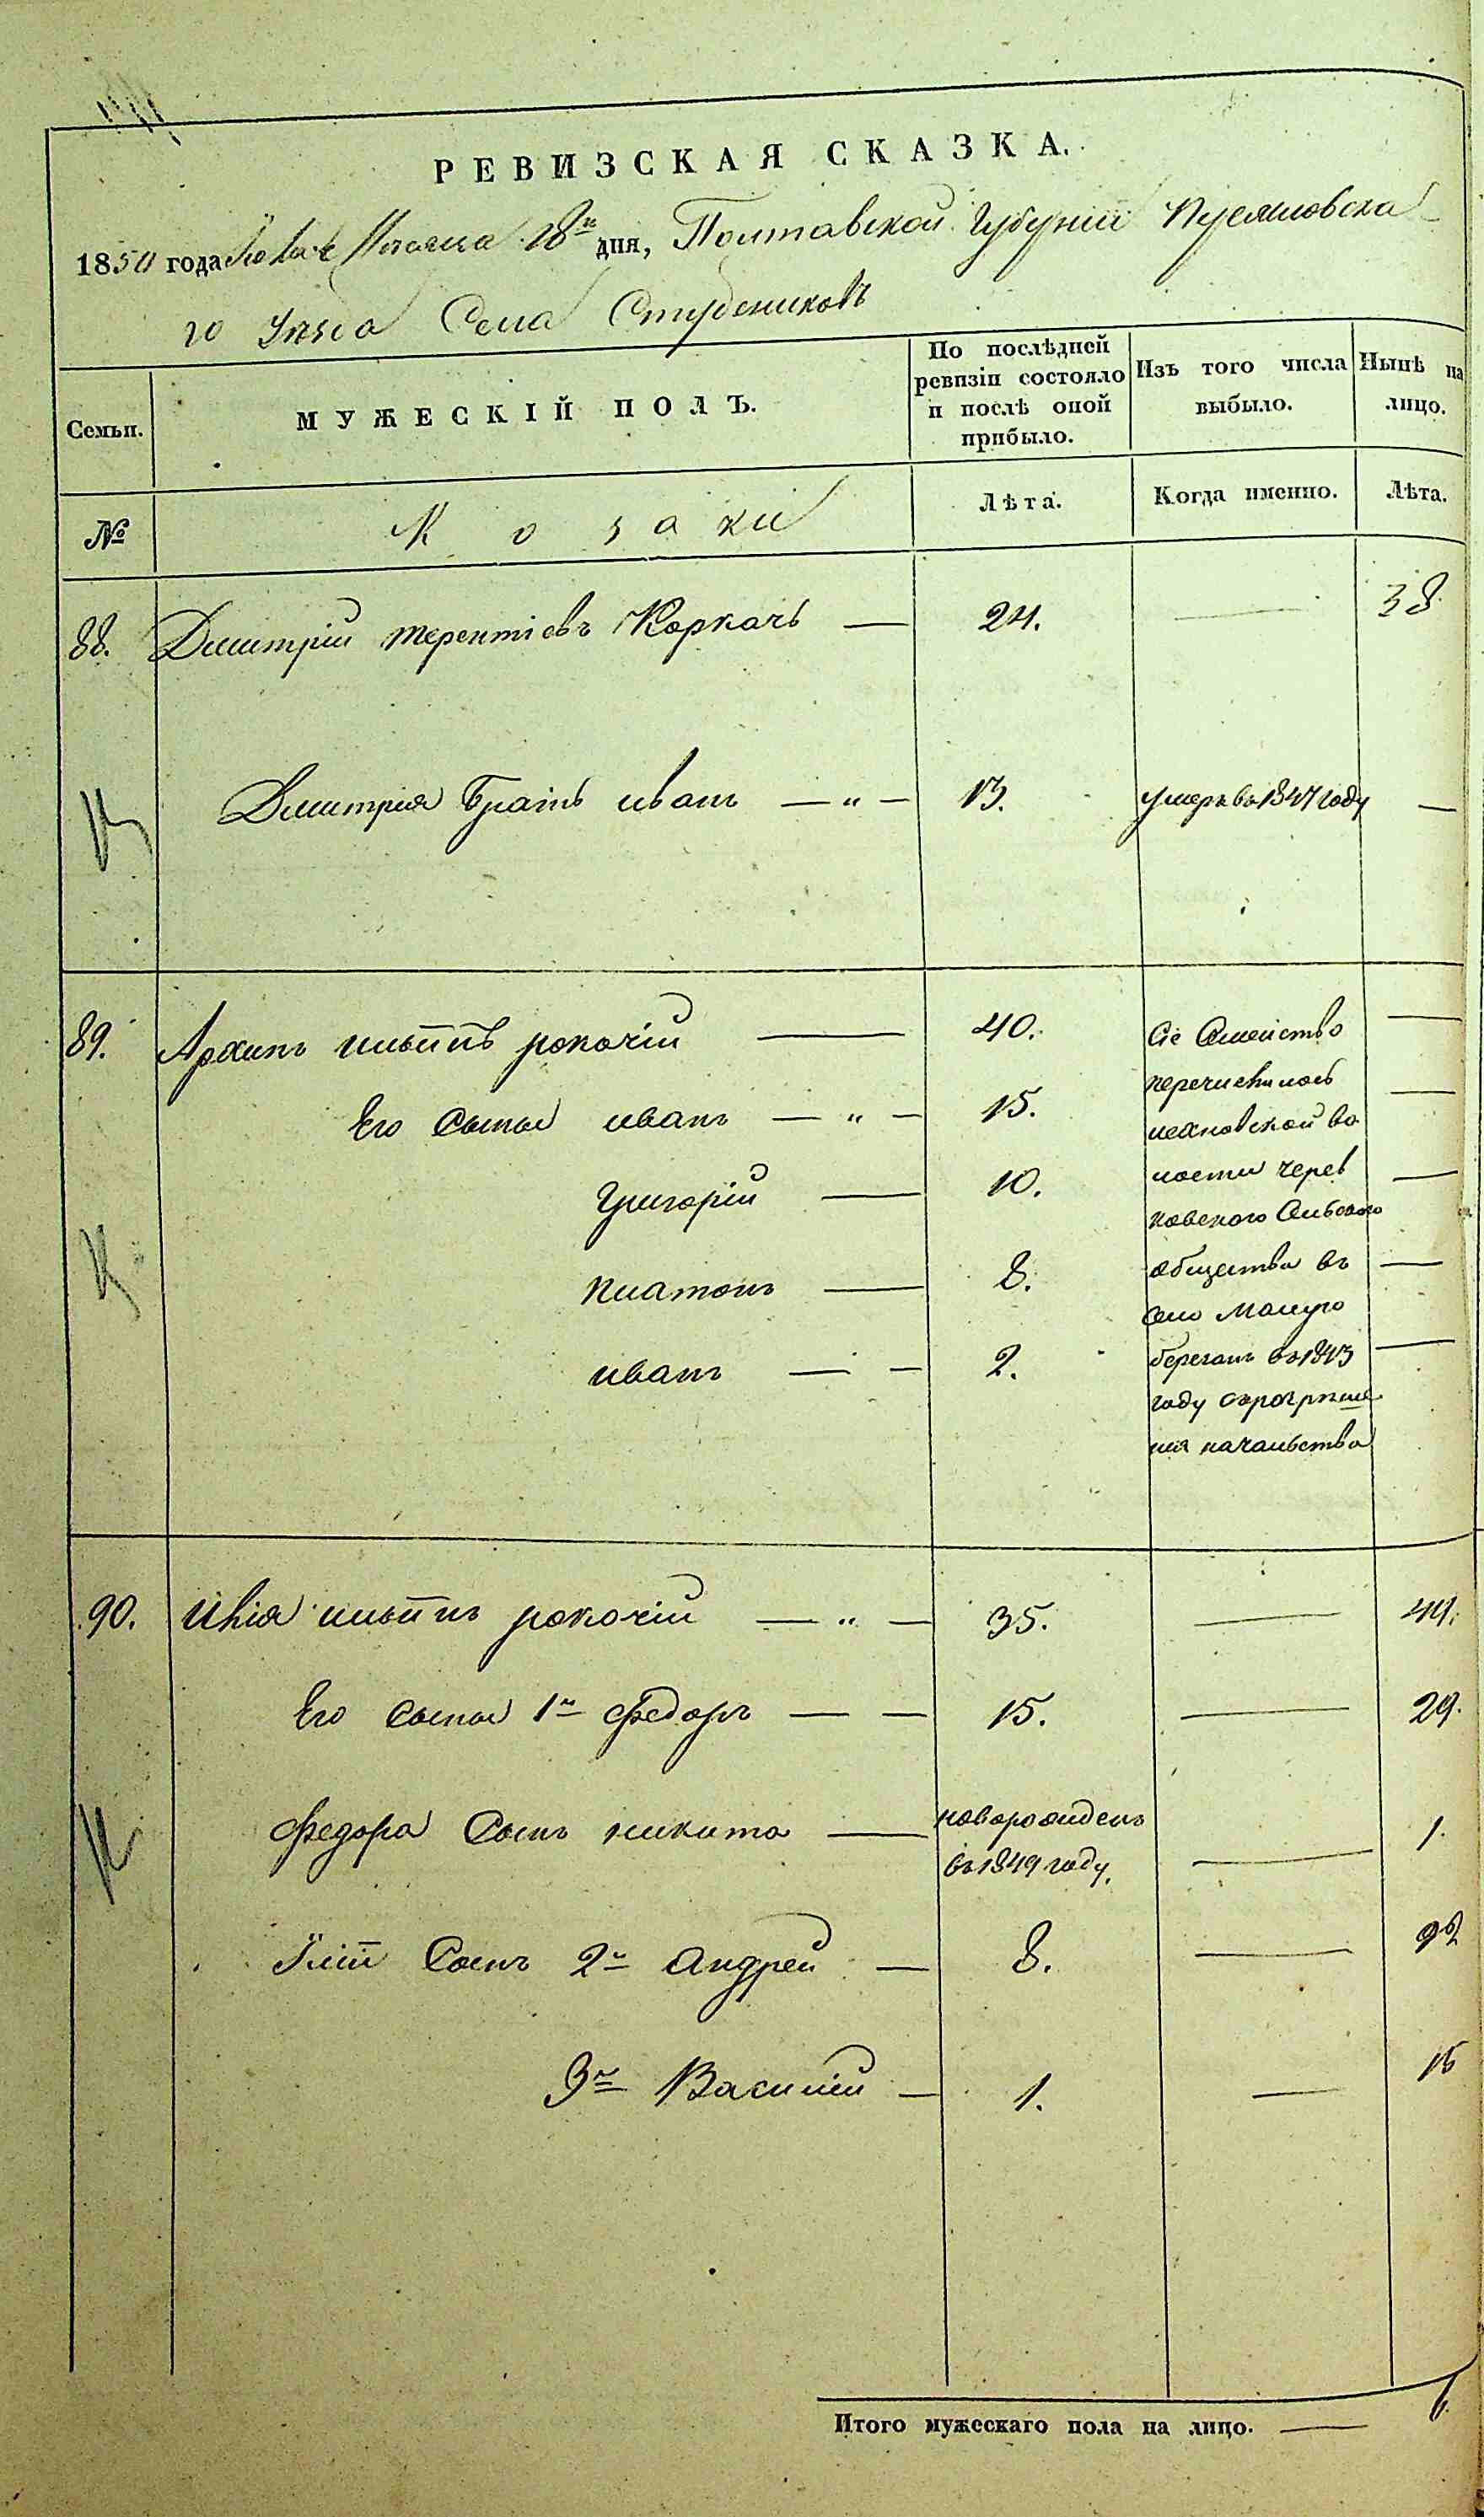 РЕВИЗСКАЯ СКАЗКА.
1850 года Месяца 18го дня, Полтавской Губерніи Переясловска
го Уезда Села Студениковъ
Семьи. МУЖЕСКІЙ ПОЛЪ. По послѣдней ревизіи состояло и послѣ оной прибыло. Изъ того числа выбыло. Нынѣ на лицо.
№ Козаки Лѣта. Когда именно. Лѣта.
88. Дмитрій терентіевъ Коркачь — 24. — 38
Дмитрія братъ иванъ — „ — 13. умеръ въ 1847 году —
89. Архипъ ильинъ рокочій — 40. Сіе Семейство —
Его Сыны иванъ — „ — 15. перечислилось —
леховской во
Григорій — 10. лости черев —
ковского Сельского
платонъ — 8. общества въ —
село Мали
иванъ — — 2. березань въ 1843 —
году
нія начальства
90. Илія ильинъ рокочій — „ — 35. — 49.
Его Сыны 1й Федоръ — — 15. — 29.
Федора Сынъ никита — новорожденъ въ 1849 году. — 1.
Іліи Сынъ 2й Андрей — 8. — 22
3й Василій — 1. — 15
Итого мужескаго пола на лицо. — 6.